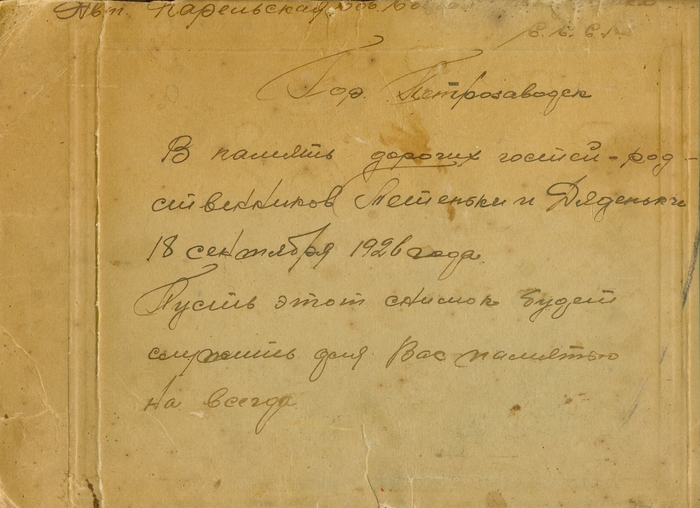 Авт. Карельская Сов.
С.С.С.Р.
Гор. Петрозаводск
В память дорогих гостей-род-
ственников Тетеньки и Дяденьки
18 сентября 1926 года.
Пусть этот снимок будет
служить для Вас памятью
на всегда